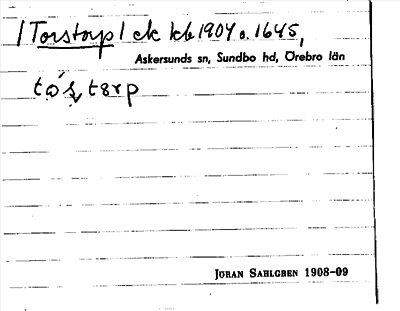 /Torstorp/ ek kb 1904 o. 1645,
Askersunds sn, Sundbo hd, Örebro län
JÖRAN SAHLGREN 1908-09